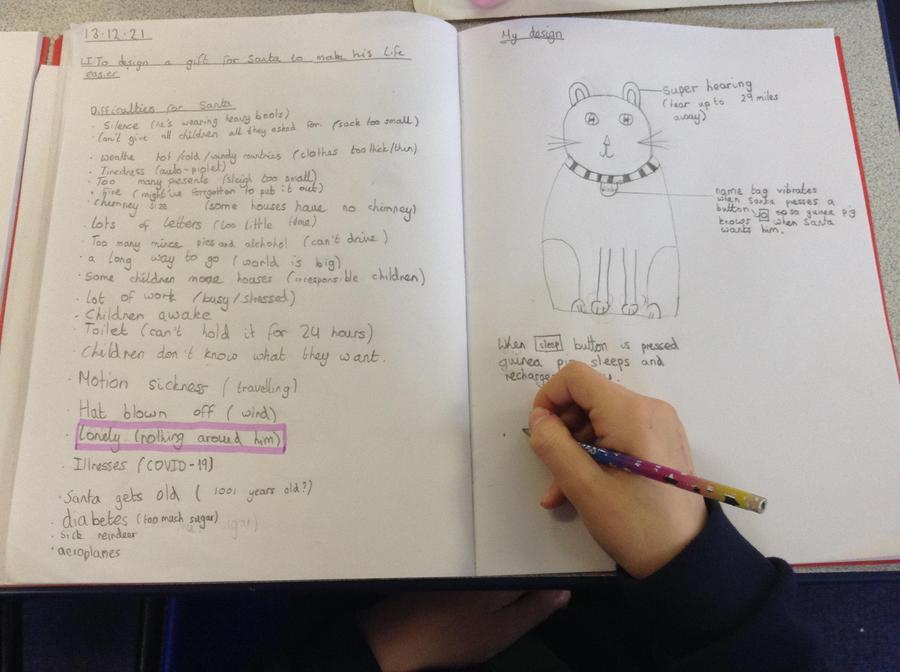 13.12.21
LI: To design a gift for Santa to make his life
easier
Difficulties for Santa
· Silence (he's wearing heavy boots)
· Can't give all children all they asked for. (sack too small)
· weathe hot /cold /windy countries (clothes too thick/thin)
· Tiredness (auto-piolet)
· Too many presents (sleigh too small)
· fire (might've forrgotton to put it out)
· chemney size (some houses have no chimney)
· lots of letters (too little time)
· Too many mince pies and alchohol (can't drive)
· a long way to go (world is big)
· Some children move houses (irresponsible children)
· lot of work /busy/stressed)
· Children awake
· Toilet (can't hold it for 24 hours)
· Children don't know what they want.
· Motion sickness (travelling)
· Hat blown off (wind)
· Lonely (nothing around him)
· Illnesses (COVID-19)
· Santa gets old ( 1001 years old?)
· diabetes (too much sugar)
· sick reindeer
· aeroplanes
My design
Super hearing
(hear up to 29 miles
away)
name tag vibrates
when Santa presses a
button so guinea pig
knows when Santa
wants him.
When sleep button is pressed
guinea pig sleeps and
recharges